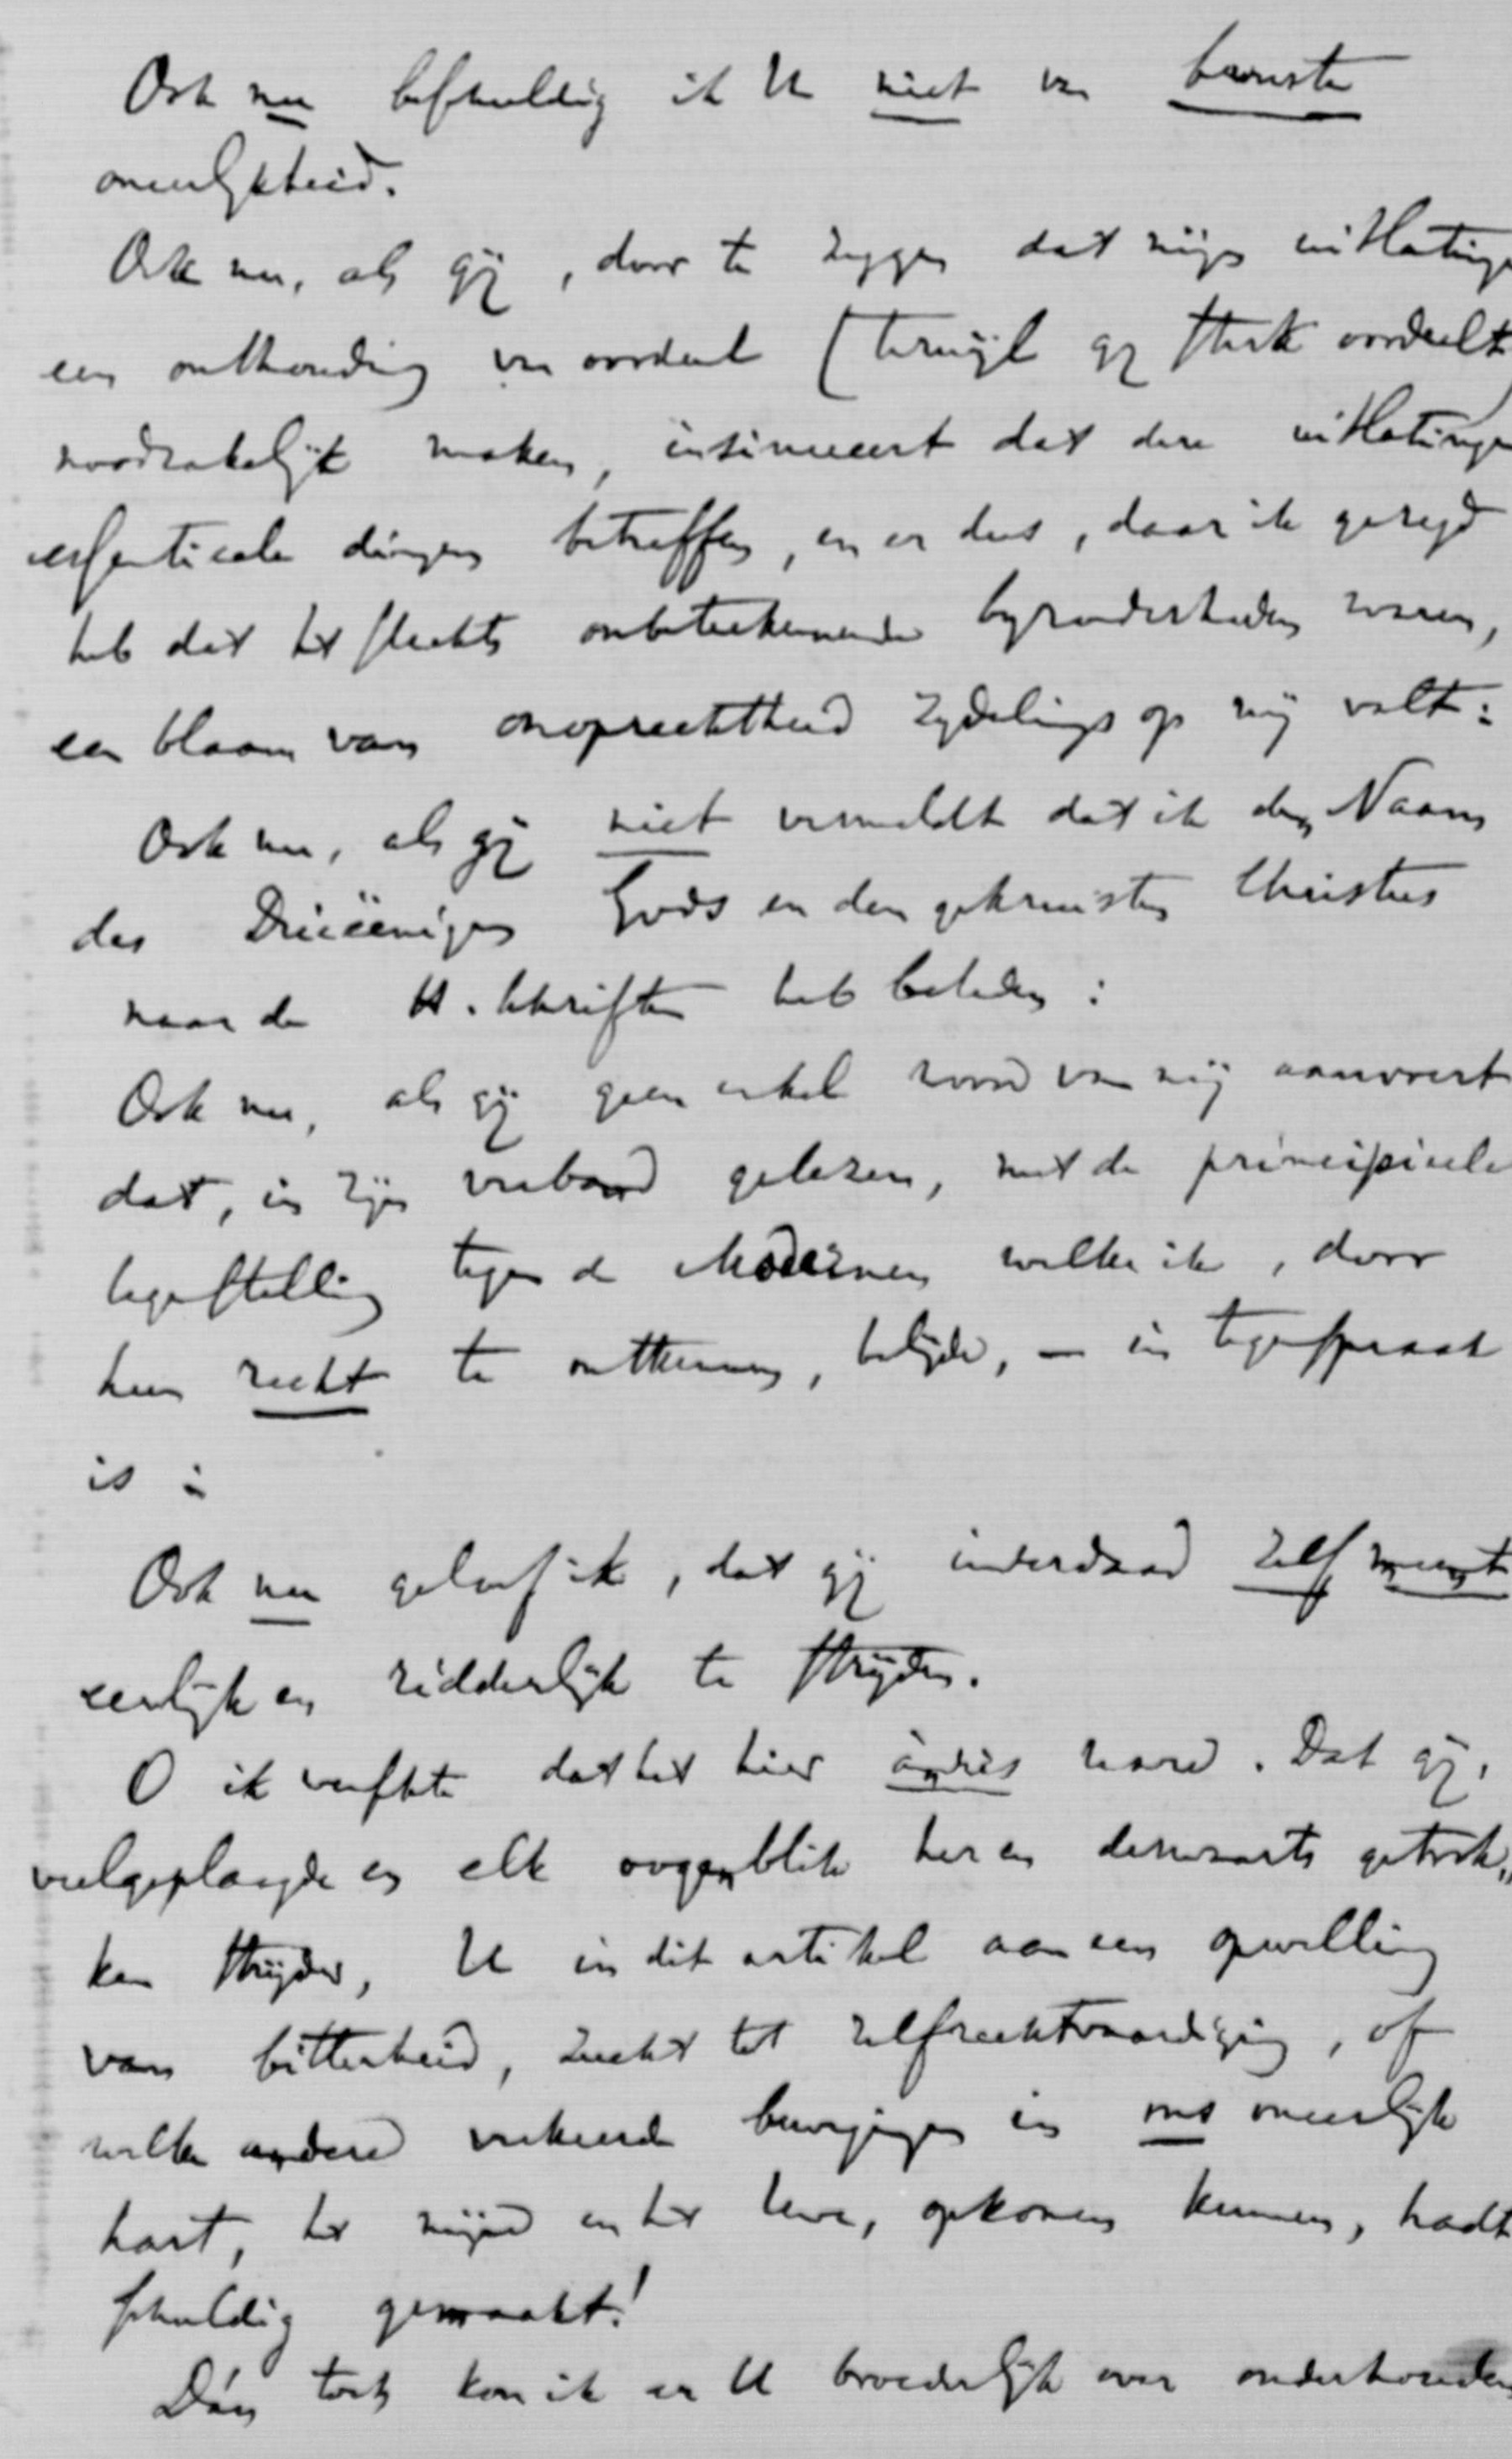 Ook nu beschuldig ik U niet van bewuste
oneerlijkheid.
Ook nu, als gij, door te zeggen dat mijn uitlatingen
een onthouding van oordeel (terwijl gij sterk oordeelt)
noodzakelijk maken, insinueert dat deze uitlatingen
essentieele dingen betreffen, en er dus, daar ik gezegd
heb dat het slechts onbeteekenende byzonderheden waren,
een blaam van onoprechtheid zydelings op mij valt:
Ook nu, als gij niet vermeldt dat ik den Naam
des Drieëenigen Gods en den gekruisten Christus
naar de H. Schriften heb beleden:
Ook nu, als gij geen enkel woord van mij aanvoert
dat, in zijn verband gelezen, met de principieele
tegenstelling tegen de Modernen welke ik, door
hun recht te ontkennen, belijde, — in tegenspraak
is:
Ook nu geloof ik, dat gij inderdaad zelf meent
eerlijk en ridderlijk te strijden.
O ik wenschte dat het hier anders ware. Dat gij,
veelgeplaagde en elk oogenblik her en derwaarts getrok„
ken strijder, U in dit artikel aan een opwelling
van bitterheid, zucht tot zelfrechtvaardiging, of
welke andere verkeerde bewegingen in ons oneerlijk
hart, het mijne en het Uwe, opkomen kunnen, hadt
schuldig gemaakt!
Dán toch kon ik er U broederlijk over onderhouden